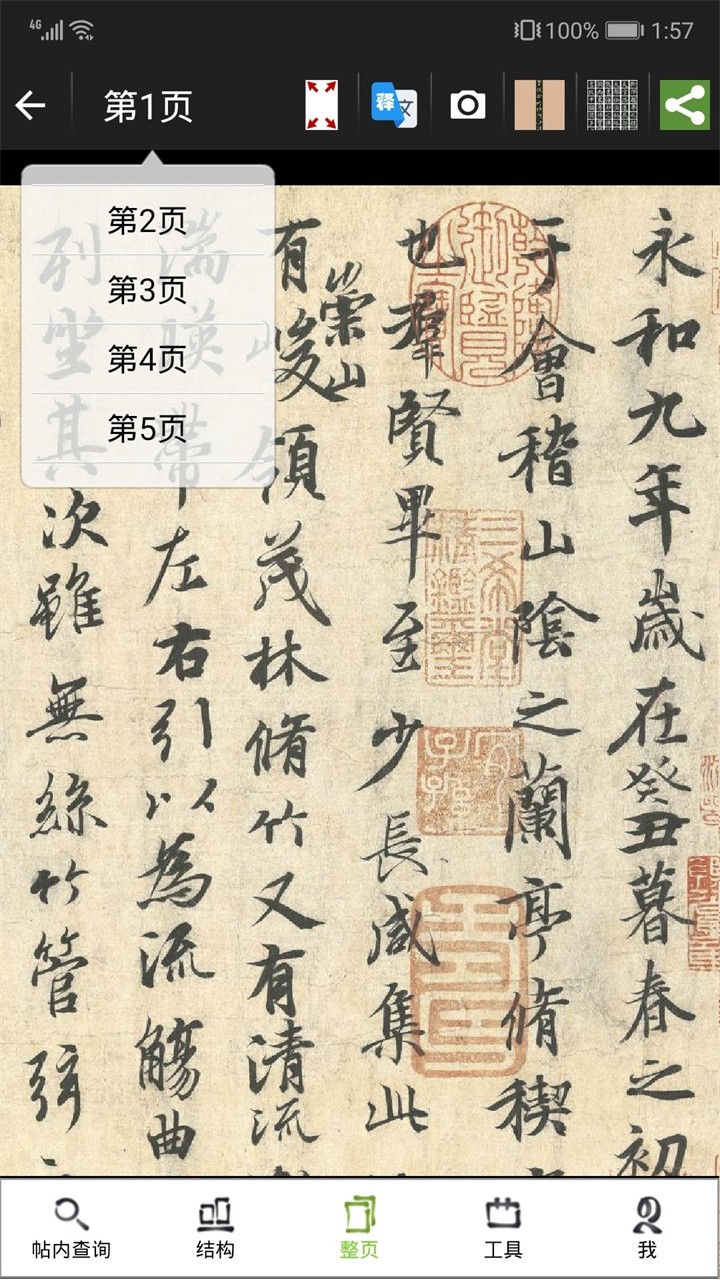 4G 100% 1:57
第1页
释 文
第2页
第3页
第4页
第5页
永和九年歲在癸丑暮春之初
于會稽山陰之蘭亭脩稧
也羣賢畢至少長咸集此
有崇山峻領茂林脩竹又有清流
湍暎帶左右引以為流觴曲
列坐其次雖無絲竹管弦
三希堂精鑑璽
宜子孫
帖内查询
结构
整页
工具
我